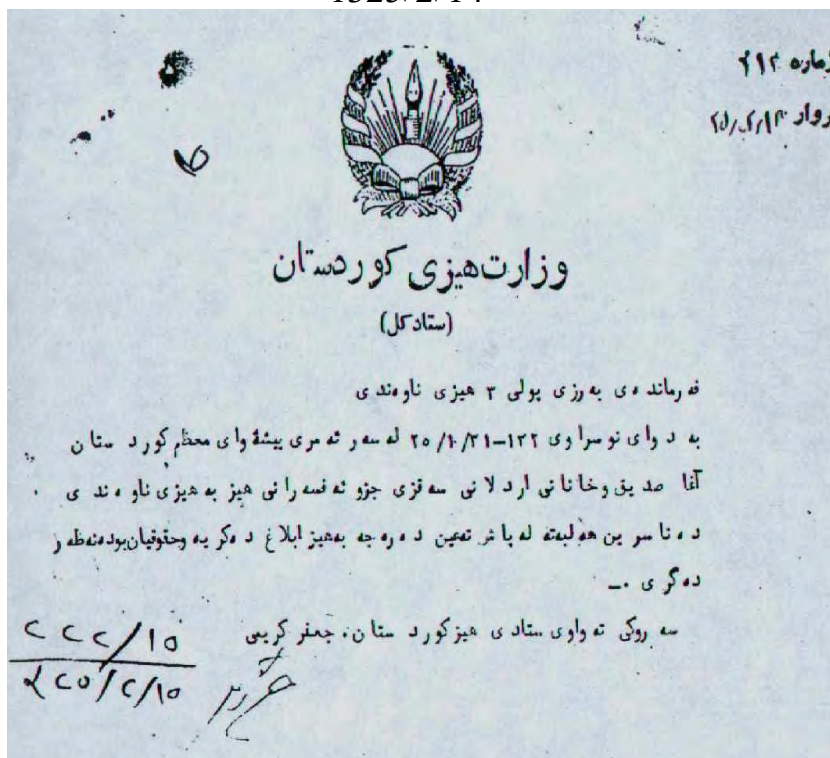 1325/2/14
ژماره ٢١٢
وزارت هیزی کوردستان
(ستاد کل)
فه‌رمانده‌ی به‌رزی پولی ٣ هیزی ناوه‌ندی
به‌ دوای نوسراوی ١٢٢–٢٥/١٠/٢١ له‌سه‌ر ئه‌مری پیشه‌وای معظم کوردستان
آغا صدیق وخانانی اردلانی سه‌قزی جزو ئه‌فسه‌رانی هیز به‌ هیزی ناوه‌ندی
ده‌ناسرین هه‌لبه‌ته له‌پاش ته‌عین ده‌ره‌جه به‌هیز ابلاغ ده‌کریه وحقوقیان بوده‌نه‌ظه‌ر
ده‌گری ٠ــ
سه‌روکی ته‌واوی ستادی هیزکوردستان، جعفر کریمی